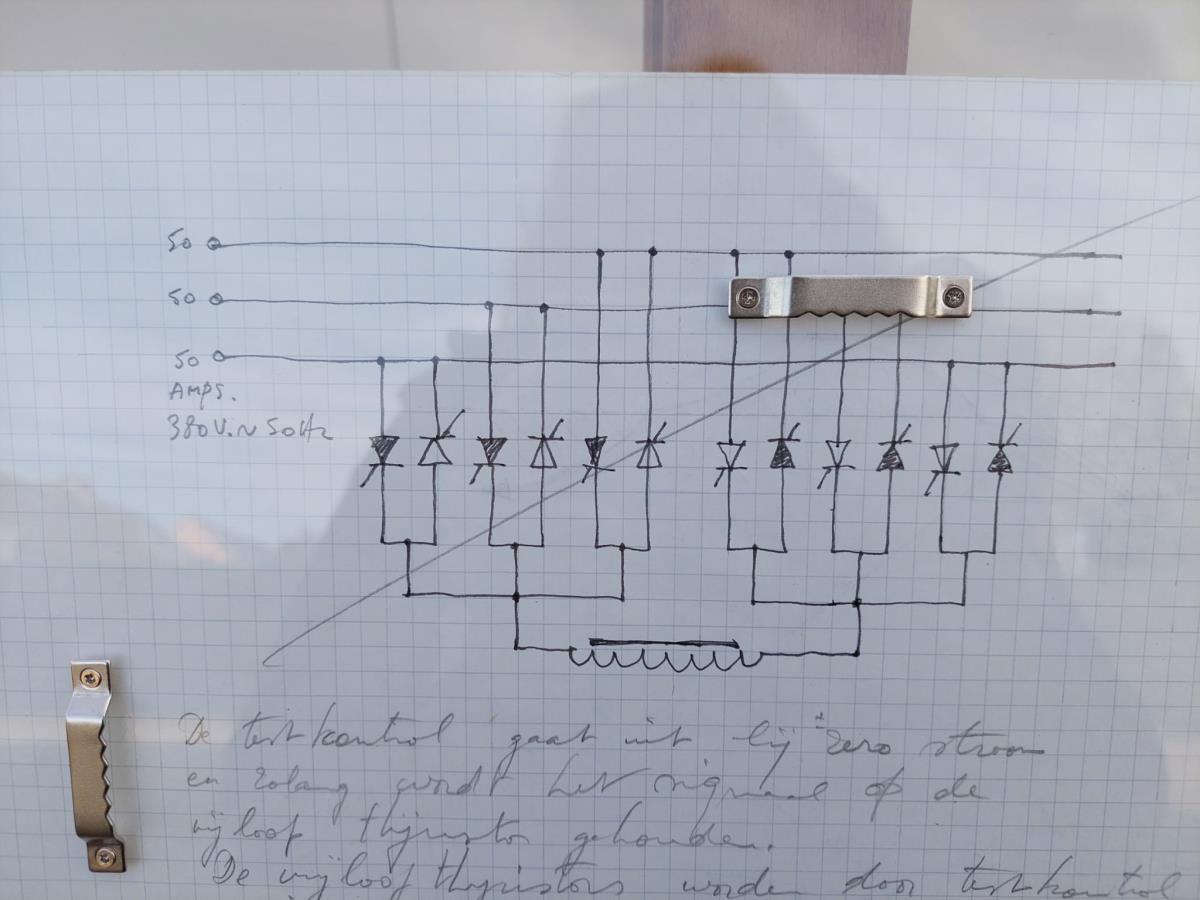 50
50
50
AMPS.
380V.~ 50Hz
De testkontrol gaat uit bij "zero stroom
en zolang wordt het signaal op de
vrijloop thijristor gehouden.
De vrijloop thyristors worden door testkontrol